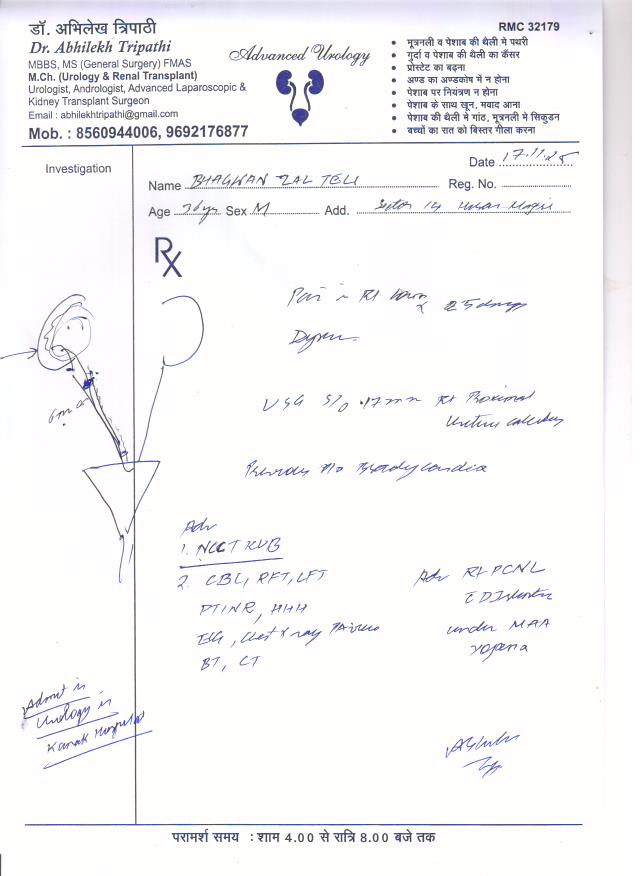 डॉ. अभिलेख त्रिपाठी
Dr. Abhilekh Tripathi
MBBS, MS (General Surgery) FMAS
M.Ch. (Urology & Renal Transplant)
Urologist, Andrologist, Advanced Laparoscopic &
Kidney Transplant Surgeon
Email : abhilekhtripathi@gmail.com
Mob. : 8560944006, 9692176877
Advanced Urology
RMC 32179
• मूत्रनली व पेशाब की थैली मे पथरी
• गुर्दा व पेशाब की थैली का कैंसर
• प्रोस्टेट का बढ़ना
• अण्ड का अण्डकोष में न होना
• पेशाब पर नियंत्रण न होना
• पेशाब के साथ खून, मवाद आना
• पेशाब की थैली मे गांठ, मूत्रनली मे सिकुडन
• बच्चों का रात को बिस्तर गीला करना
Investigation
Date 17.11.25
Name BHAGWAN LAL TELI Reg. No.
Age Sex M Add. Sector 14
Rx
Pain in Rt
USG S/O 17mm Rt Proximal
Ureteric calculus
H/O Bradycardia
Adv
1. NCCT KUB
2. CBC, RFT, LFT
PTINR, HHH
ECG, Chest X ray PA view
BT, CT
Adv Rt PCNL
under MAA
Yojana
Admit in
Urology in
Kanak Hospital
परामर्श समय : शाम 4.00 से रात्रि 8.00 बजे तक